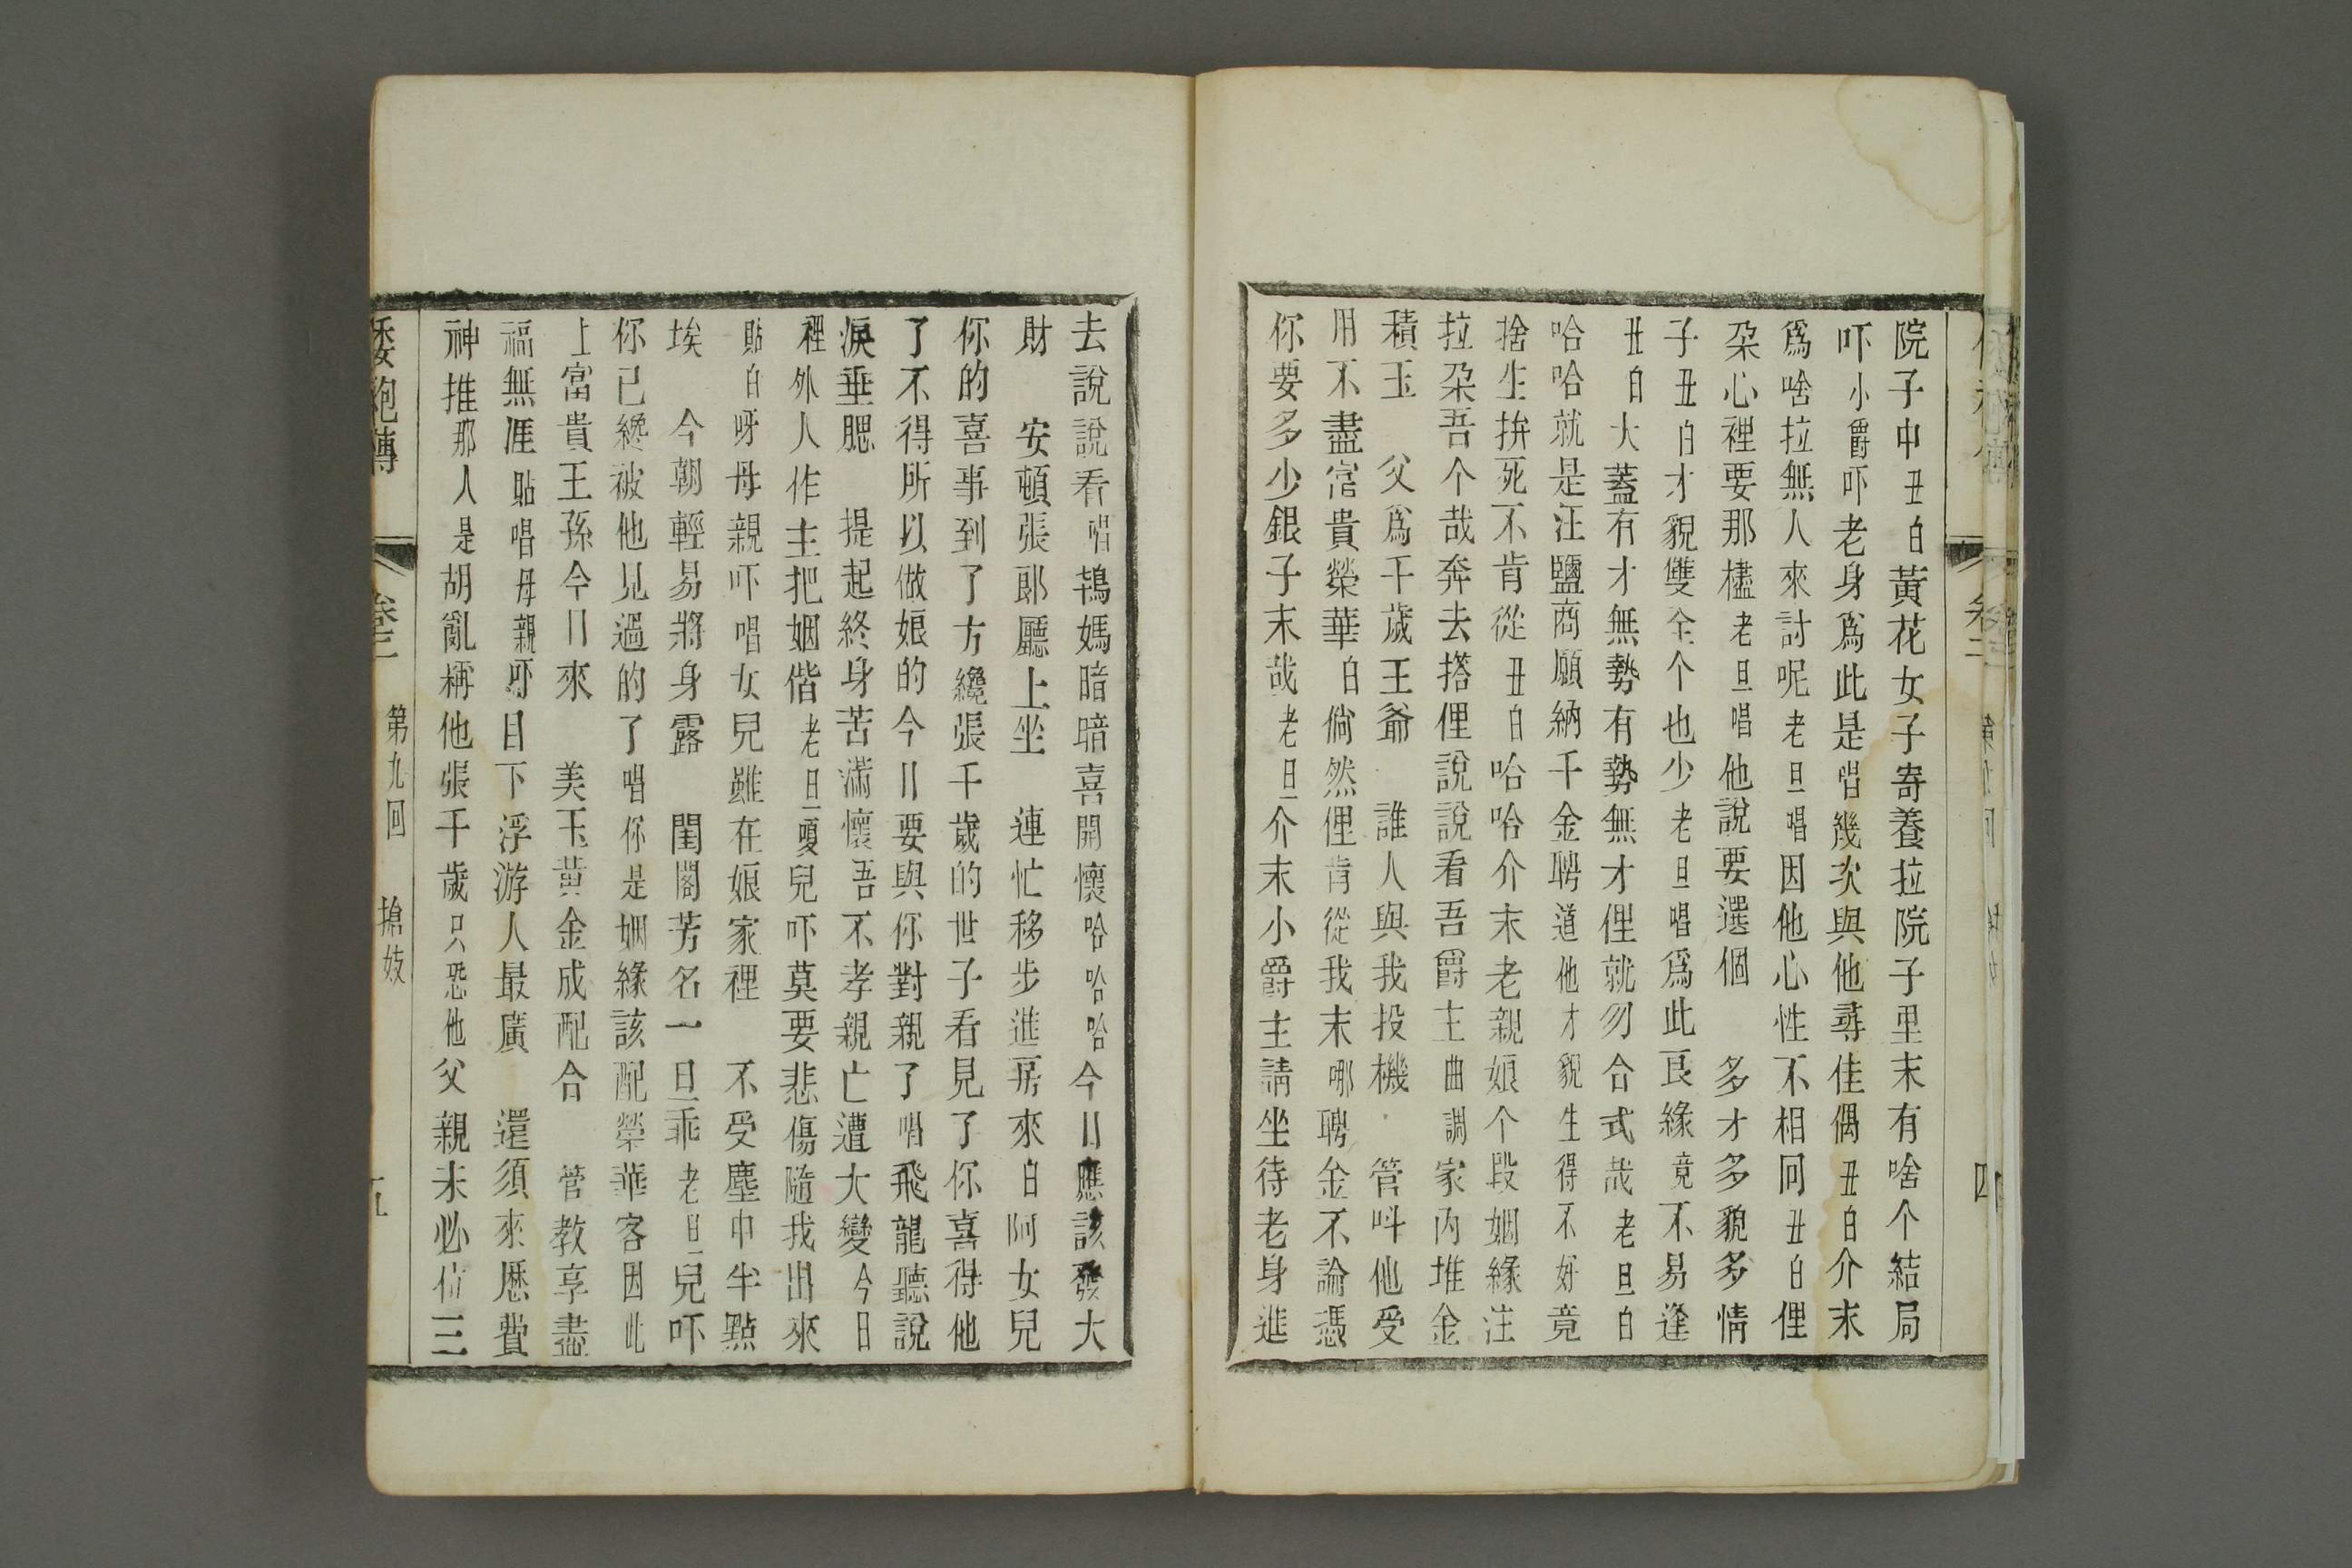 院子中丑白黃花女子寄養拉院子里末有啥个結局
吓小爵吓老身爲此是唱幾次與他尋佳偶丑白介末
爲啥拉無人來討呢老旦唱因他心性不相同丑白俚
朶心裡要那樣老旦唱他說要選個　多才多貌多情
子丑白才貌雙全个也少老旦唱爲此良緣竟不易逢
丑白大蓋有才無勢有勢無才俚就勿合式哉老旦白
哈哈就是汪鹽商願納千金聘道他才貌生得不好竟
捨生拚死不肯從丑白哈哈介末老親娘个段姻緣注
拉朶吾个哉奔去搭俚說說看吾爵主曲調家內堆金
積玉　父爲千歲王爺　誰人與我投機　管呌他受
用不盡富貴榮華白倘然俚肯從我末哪聘金不論憑
你要多少銀子末哉老旦介末小爵主請坐待老身進
去說說看唱鴇媽暗暗喜開懷哈哈哈今日應該發大
財　安頓張郎廳上坐　連忙移步進房來白阿女兒
你的喜事到了方纔張千歲的世子看見了你喜得他
了不得所以做娘的今日要與你對親了唱飛龍聽說
淚垂腮　提起終身苦滿懷吾不孝親亡遭大變今日
裡外人作主把姻偕老旦嗄兒吓莫要悲傷隨我出來
貼白呀母親吓唱女兒雖在娘家裡　不受塵中半點
埃　今朝輕易將身露　閨閣芳名一旦乖老旦兒吓
你已纔被他見過的了唱你是姻緣該配榮華客因此
上富貴王孫今日來　美玉黃金成配合　管教享盡
福無涯貼唱母親吓目下浮游人最廣　還須來歷費
神推那人是胡亂稱他張千歲只恐他父親未必信三
倭袍傳　卷二　第九回　搶妓